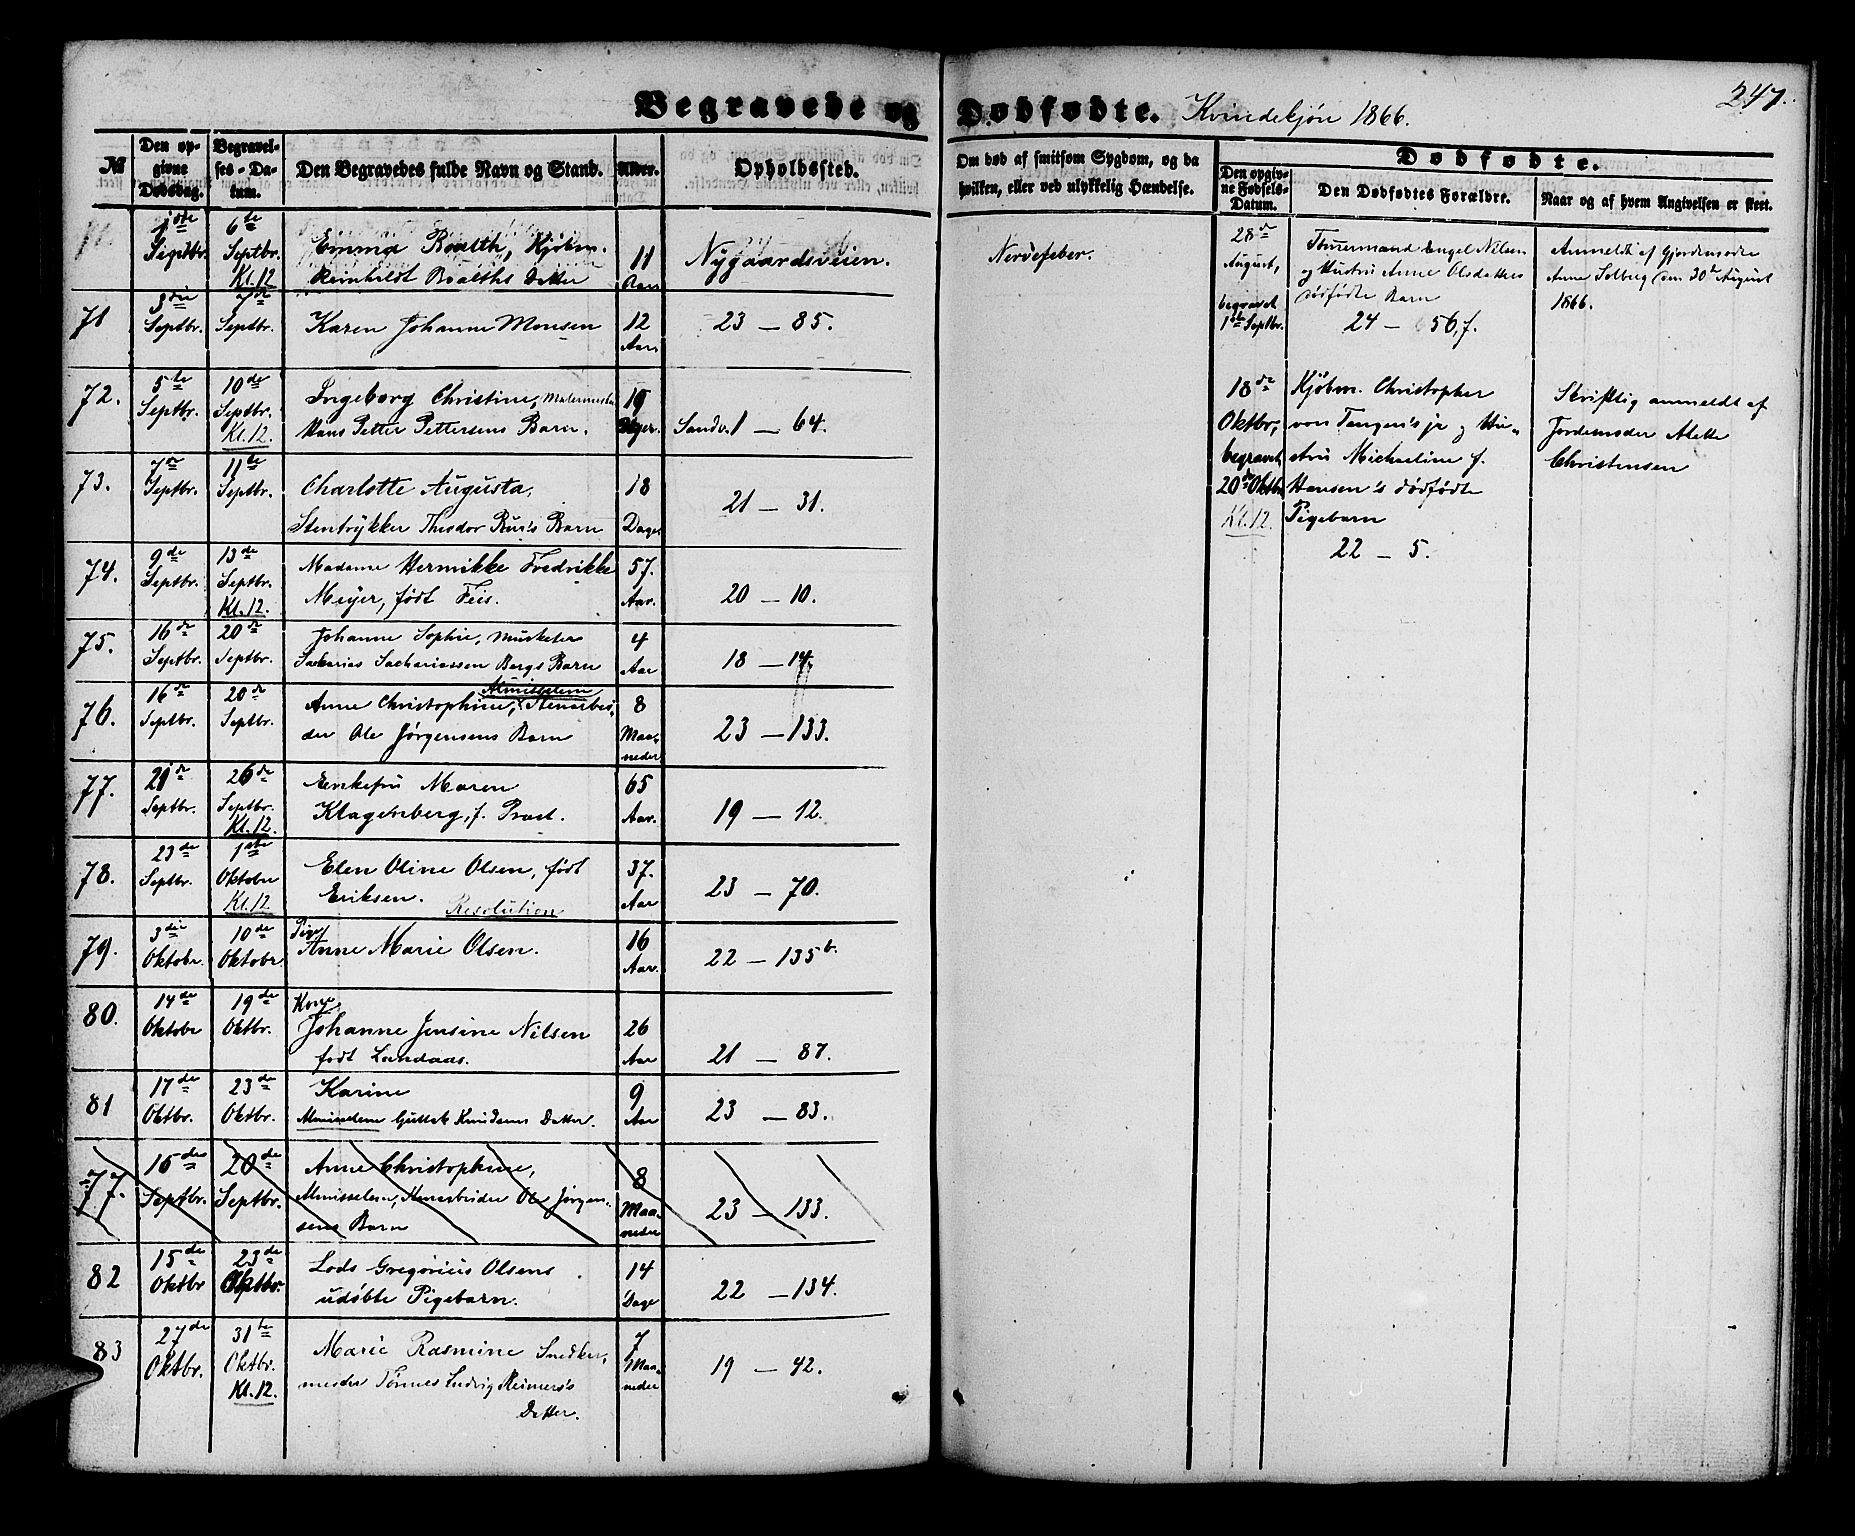 Begravede og Dødfødte. Kvindekjøn 1866.
247.
№
Den op-
givne
Dødsdag.
Begravel-
ses-Da-
tum.
Den Begravedes fulde Navn og Stand.
Alder.
Opholdssted.
Om død af smitsom Sygdom, og da
hvilken, eller ved ulykkelig Hændelse.
Dødfødte.
Den opgiv-
ne Fødsels-
Datum.
Den Dødfødtes Forældre.
Naar og af hvem Angivelsen er skeet.
1ste Septbr.
6te Septbr. Kl. 12
Emma Roalth, Kjøbm.
Reinholdt Roalths Datter
11 Aar
Nygaardsveien.
Nervefeber.
71
3die Septbr.
7de Septbr.
Karen Johanne Monsen
12 Aar.
23 – 85.
72.
5te Septbr.
10de Septbr. Kl. 12
Ingeborg Christine, Malermester
Hans Petter Pettersens Barn.
19 Dager.
Sandv. 1 – 64.
73.
7de Septbr.
11te Septbr.
Charlotte Augusta,
Stentrykker Theodor Rus's Barn
18 Dage
21 – 31.
74.
9de Septbr.
13de Septbr. Kl. 12.
Madame Hermikke Fredrikke
Meyer, født Feis.
57. Aar.
20 – 10.
75.
16de Septbr.
20de Septbr.
Johanne Sophie, Musketer
Sakarias Sachariassen Bergs Barn
4 Aar
18 – 14.
76.
16de Septbr.
20de Septbr.
Almisselem
Anne Christophine, Stenarbei-
der Ole Jørgensens Barn
8 Maa-
neder
23 – 133.
77.
21de Septbr.
26de Septbr. Kl. 12.
Enkefru Maren
Klagenberg, f. Prast.
65 Aar.
19 – 12.
78.
23de Septbr.
1ste Oktober Kl. 12
Elen Oline Olsen, født
Eriksen. Resolution
37. Aar
23 – 70.
79.
3die Oktobr.
10de Oktobr
Pige
Anne Marie Olsen.
16 Aar.
22 – 135b.
80.
14de Oktober
19de Oktbr.
Kone
Johanne Jensine Nilsen
født Landaas.
26 Aar
21 – 87.
81
17de Oktbr.
23de Oktbr.
Karine
Almisselem Guttak Knudsens Datter.
9 Aar
23 – 83.
77.
16de Septbr.
20de Septbr.
Anne Christophine,
Almisselem, Stenarbeider Ole Jørgen-
sens Barn
8 Maa-
neder
23 – 133.
82
15de Oktbr
23de Oktbr.
Lods Gregorius Olsens
udøbte Pigebarn.
14 Dage
22 – 134.
83
27de Oktbr.
31te Oktbr. Kl. 12.
Marie Rasmine Snedker-
mester Tønnes Ludvig Reimers's
Datter.
7 Maa-
neder
19 – 42.
28de
August,
begravet
1ste Septbr.
Tømmermand Engel Nilsen
og Hustru Anne Olsdatters
dødfødte Barn
24 – 56, f.
Anmeldt af Gjordemoder
Anne Solberg den 30te August
1866.
18de
Oktbr,
begravet
20de Oktbr
Kl. 12.
Kjøbm. Christopher
von Tangen's jr og Hu-
stru Michaeline f.
Hansen's dødfødte
Pigebarn
22 – 5.
Skriftlig anmeldt af
Jordemoder Alette
Christensen